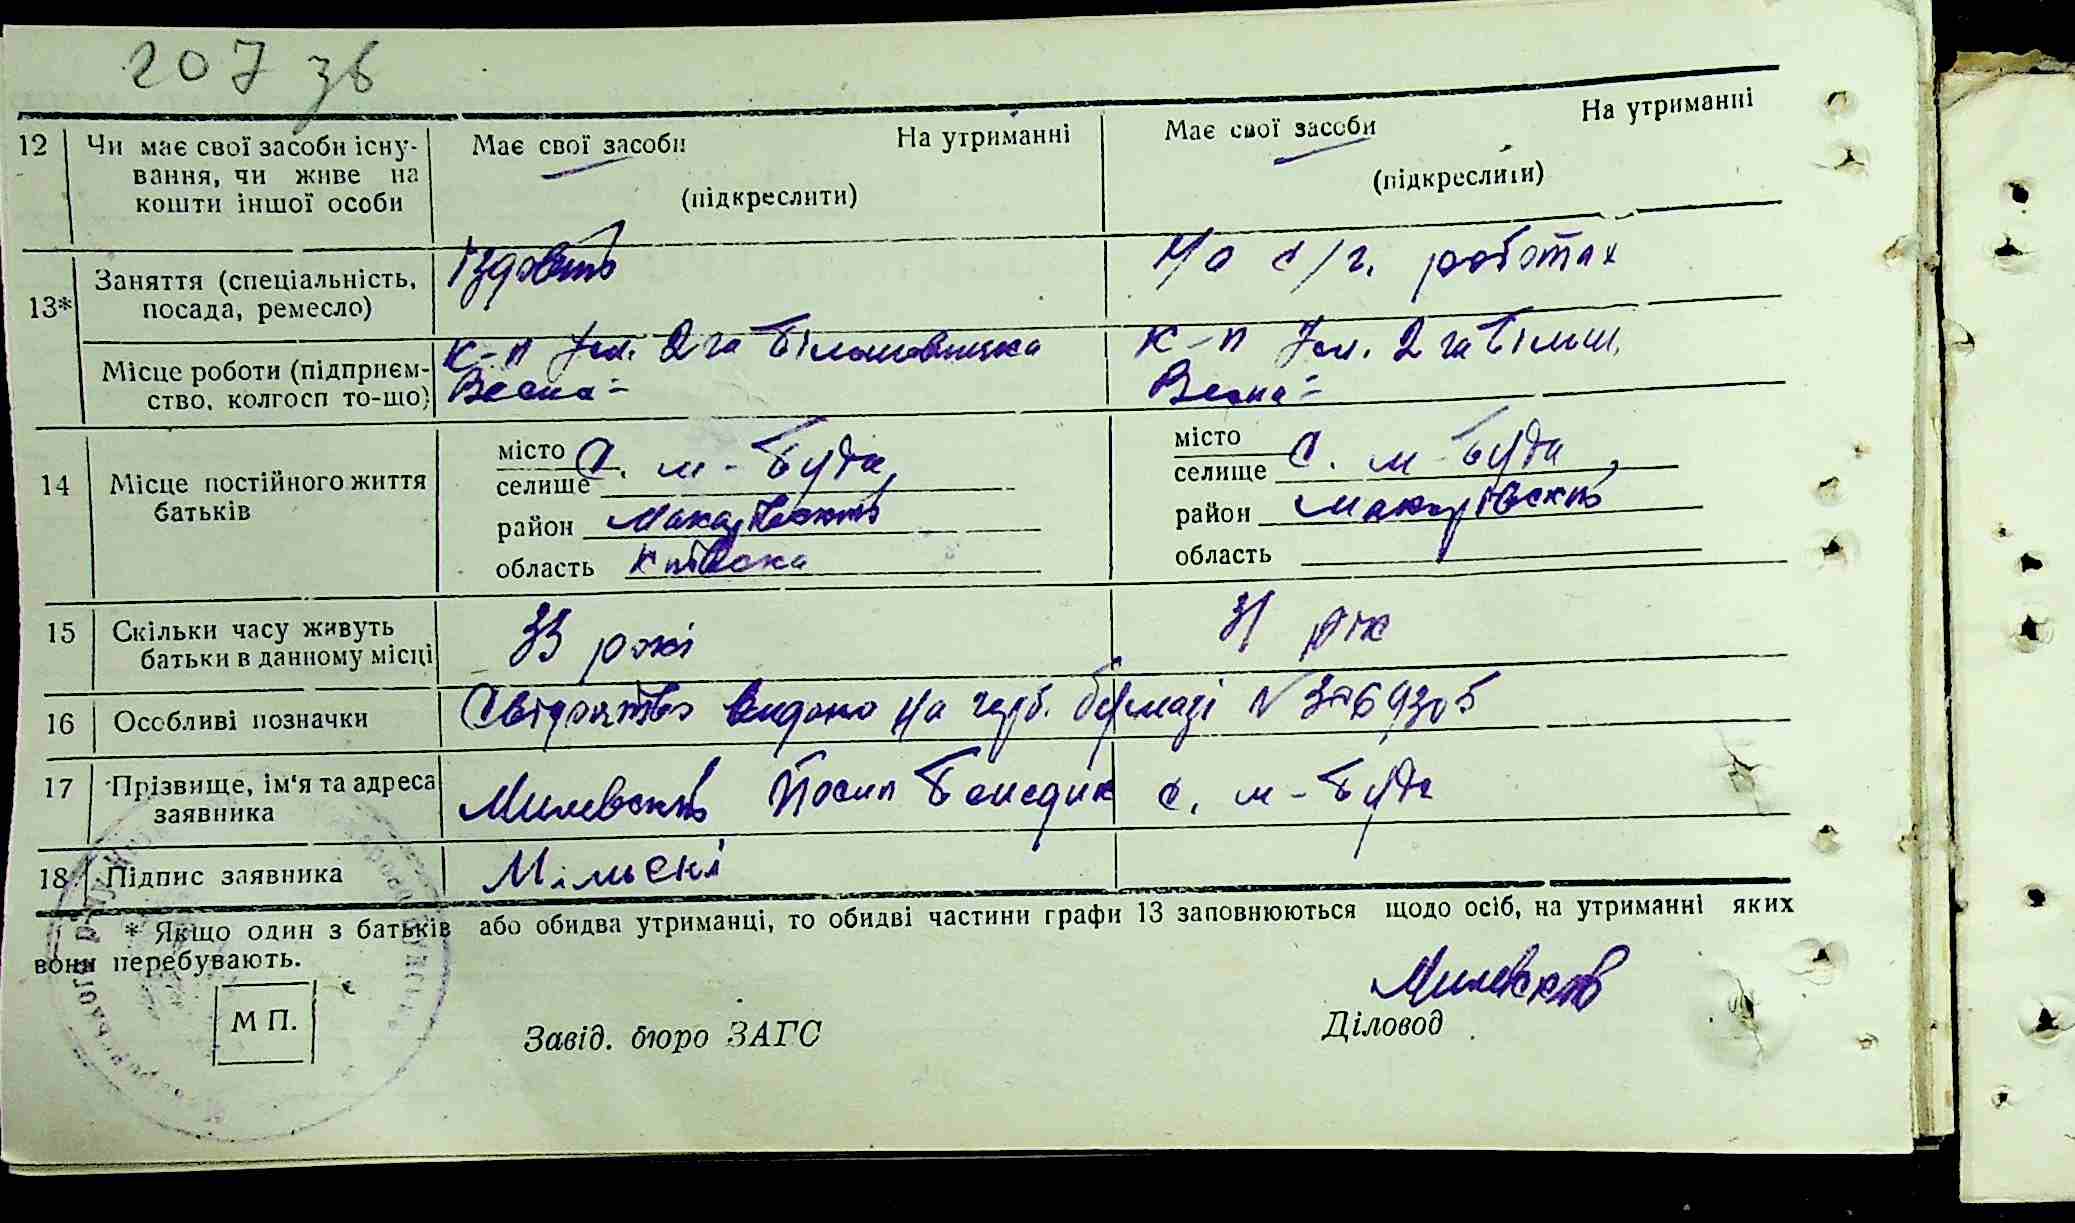 207 зв
12 Чи має свої засоби існу- Має свої засоби На утриманні Має свої засоби На утриманні
вання, чи живе на (підкреслити) (підкреслити)
кошти іншої особи
13* Заняття (спеціальність, Їздовий На с/г. роботах
посада, ремесло)
Місце роботи (підприєм- К-п 2га К-п 2га
ство, колгосп то-що) Весна Весна
14 Місце постійного життя місто С. М-Буда, місто С. М-Буда,
батьків селище селище
район Макарівський район Макарівський
область Київська область
15 Скільки часу живуть 33 рокі 31 рік
батьки в данному місці
16 Особливі позначки Свідоцтво видано на герб. бумазі №
17 Прізвище, ім'я та адреса Милевский Йосип Бенедик с. М-Буда
заявника
18 Підпис заявника Мільскі
* Якщо один з батьків або обидва утриманці, то обидві частини графи 13 заповнюються щодо осіб, на утриманні яких
вони перебувають.
Милевский
М П. Завід. бюро ЗАГС Діловод